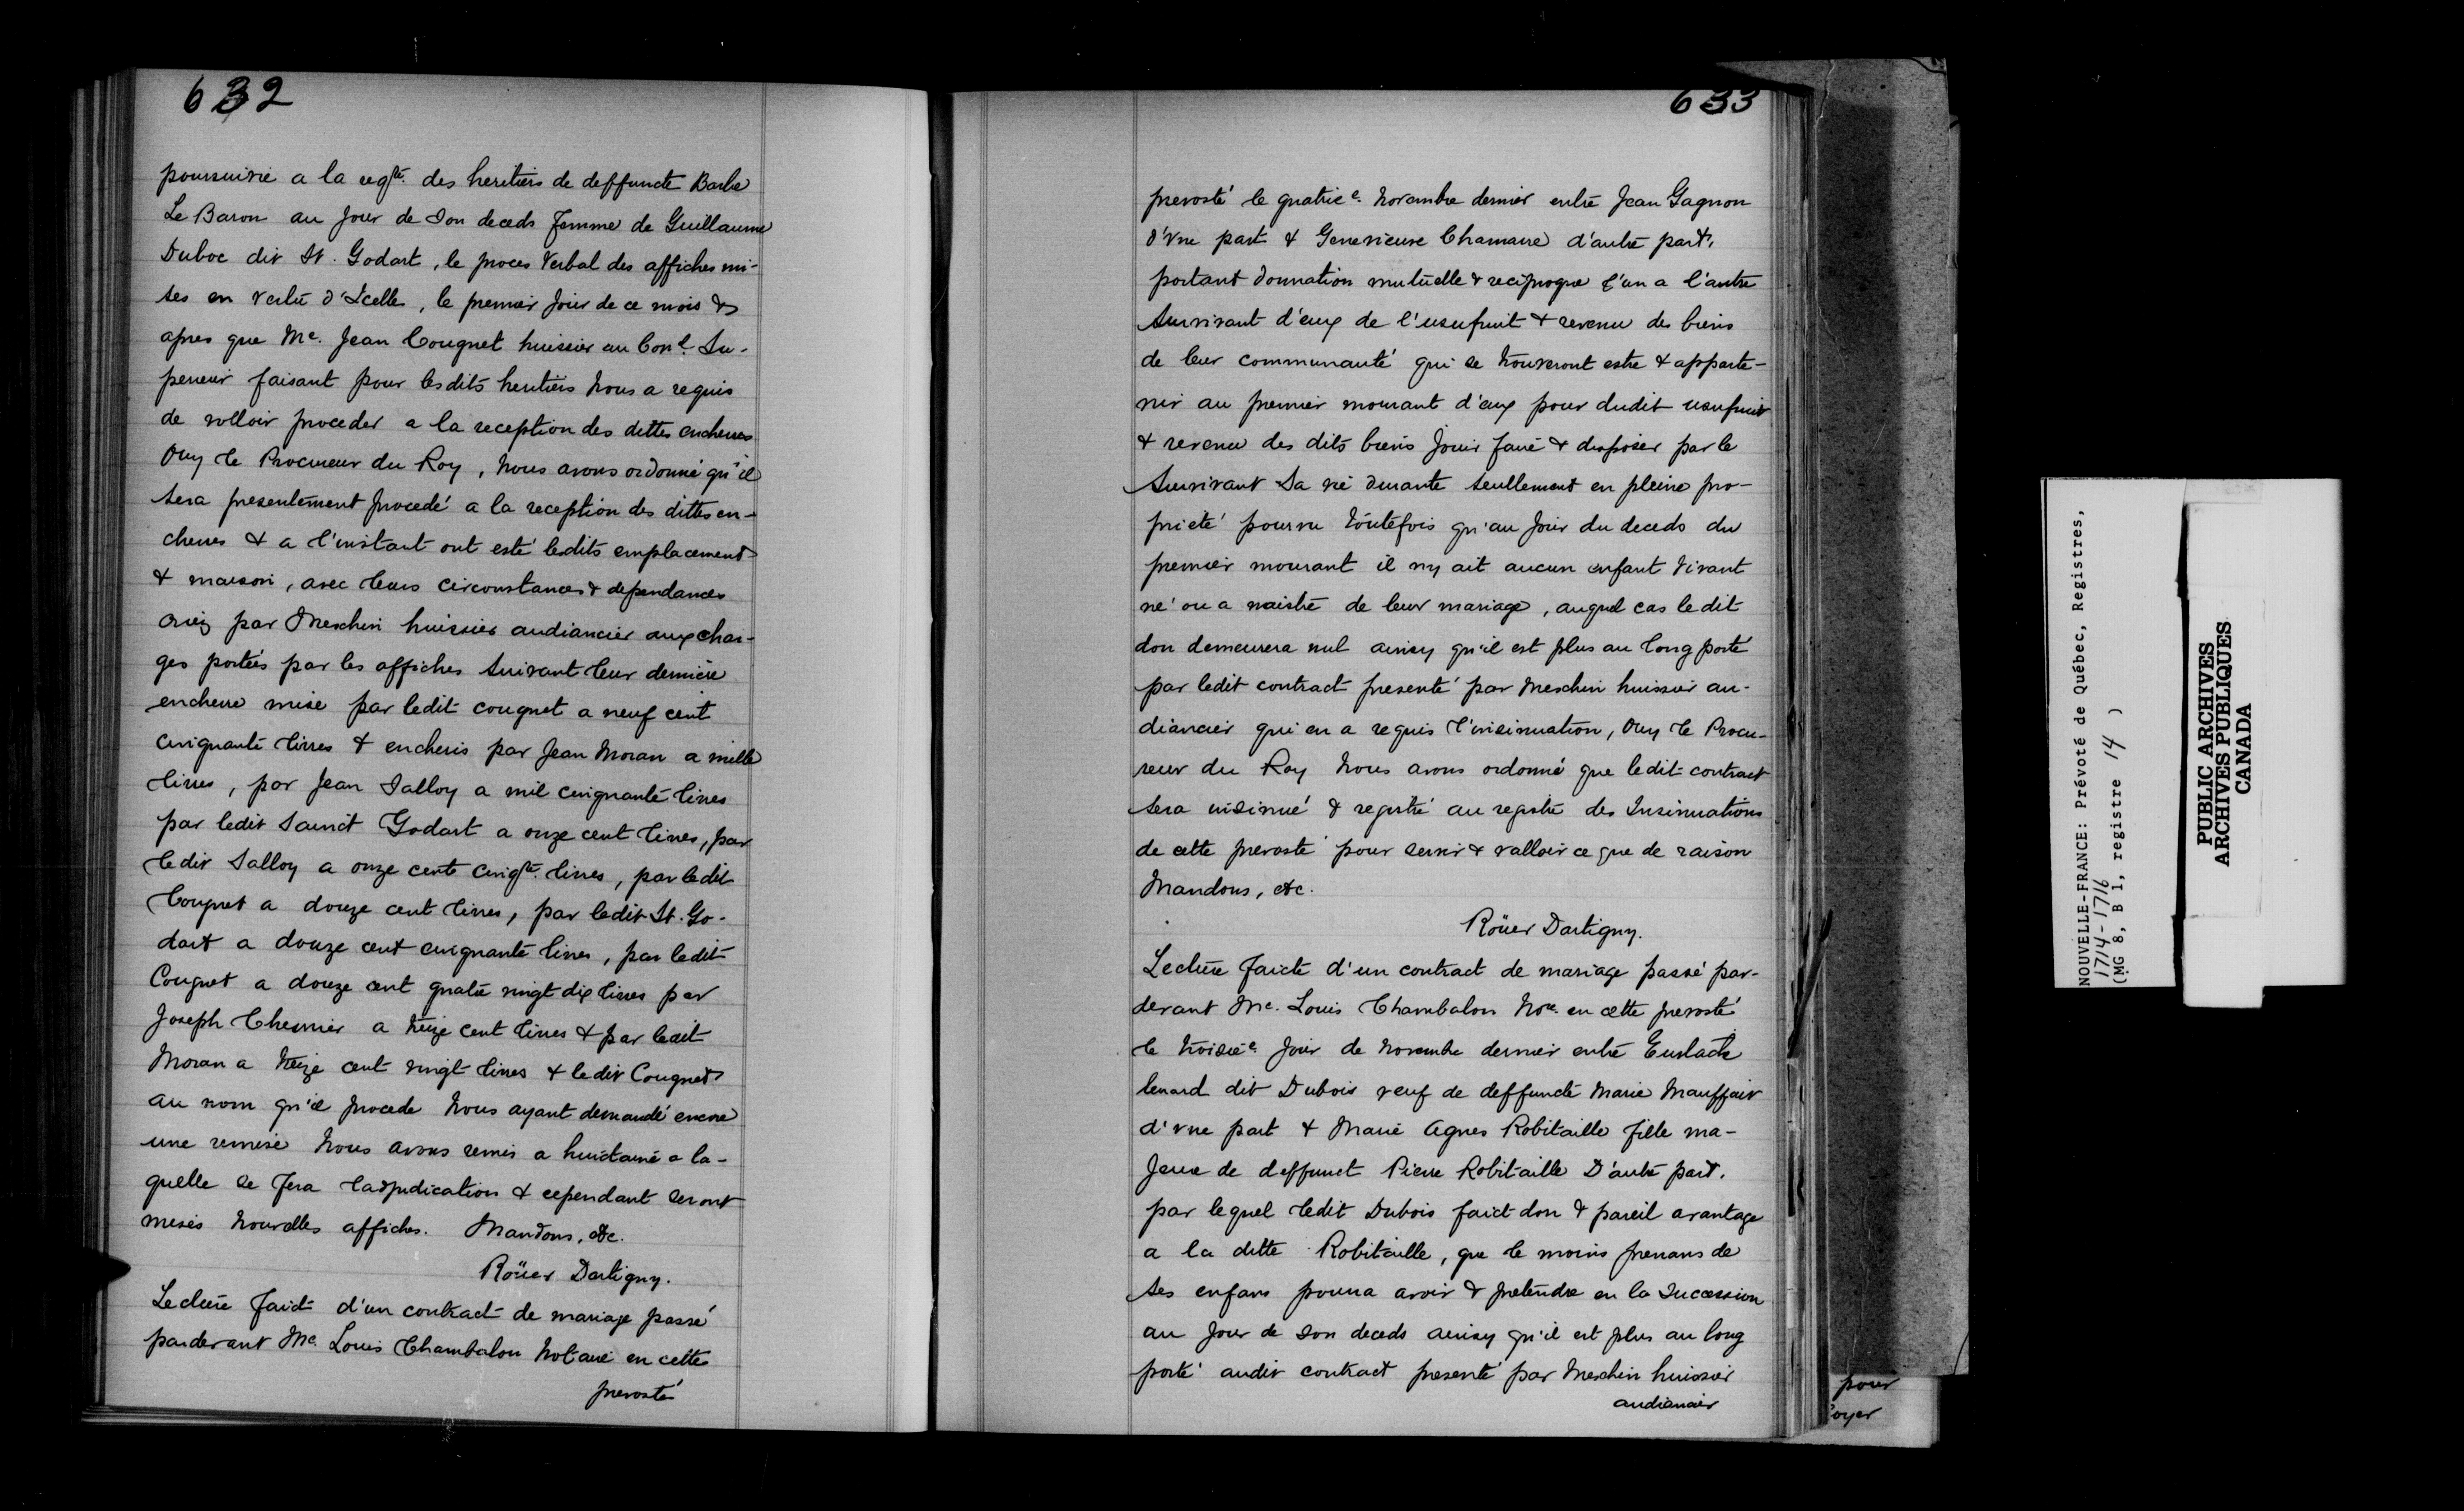 632
poursuivie a la reqte. des heritiers de deffuncte Barbe
Le Baron au Jour de Son deceds femme de Guillaume
Duboc dit St. Godart, le proces Verbal des affiches mi-
ses en vertu d'Icelles, le premier Jour de ce mois &
apres que Me. Jean Cougnet huissier au Conl. Su-
perieur faisant pour lesdits heritiers Nous a requis
de volloir proceder a la reception des dittes encheres
Ouy le Procureur du Roy, Nous avons ordonné qu'il
sera presentement procedé a la reception des dittes en-
cheres & a l'instant ont esté lesdits emplacement
& maison, avec leurs circonstances & dependances
criez par Meschin huissier audiancier aux char-
ges portées par les affiches suivant leur derniere
enchere mise par ledit cougnet a neuf cent
cinquante livres & encheris par Jean Moran a mille
livres, par Jean Salloy a mil cinquante livres
par ledit Sainct Godart a onze cent livres, par
ledit Salloy a onze cents cinqte. livres, par ledit
Cougnet a douze cent livres, par ledit St. Go-
dart a douze cent cinquante livres, par ledit
Cougnet a douze cent quatre vingt dix livres par
Joseph Chesnier a treize cent livres & par ledit
Moran a treize cent vingt livres & ledit Cougnet
au nom qu'il procede Nous ayant demandé encore
une remise Nous avons remis a huictaine a la-
quelle se fera l'adjudication & cependant seront
mises nouvelles affiches. Mandons, etc.
Roüer Dartigny.
Lecture faict d'un contract de mariage passé
pardevant Me. Louis Chambalon Notaire en cette
prevosté
633
prevosté le quatrie e. Novembre dernier entre Jean Gagnon
d'vne part & Genevieuve Chamarre d'autre part,
portant donnation mutuelle & reciproque l'un a l'autre
Survivant d'eux de l'usufruit & revenu des biens
de leur communauté qui se trouveront estre & apparte-
nir au premier mourant d'eux pour dudit usufruit
& revenu des dits biens Jouir faire & disposer par le
Survivant Sa vie durante seullement en pleine pro-
prieté pourvu toutefois qu'au Jour du deceds du
premier mourant il ny ait aucun enfant vivant
né ou a naistre de leur mariage, auquel cas ledit
don demeurera nul ainsy qu'il est plus au long porté
par ledit contract presenté par Meschin huissier au-
diancier qui en a requis l'insinuation, Ouy le Procu-
reur du Roy Nous avons ordonné que ledit contract
sera insinué & registré au registre des Insinuations
de cette prevosté pour servir & valloir ce que de raison
Mandons, etc.
Roüer Dartigny.
Lecture faicte d'un contract de mariage passé par-
devant Me. Louis Chambalon Nore. en cette prevosté
le troisie e. Jour de Novembre dernier entre Eustache
lienard dit Dubois veuf de deffuncte Marie Mauffait
d'vne part & Marie Agnes Robitaille fille ma-
jeure de deffunct Pierre Robitaille D'autre part,
par lequel ledit Dubois faict don & pareil avantage
a la ditte Robitaille, que le moins prenans de
ses enfans pourra avoir & pretendre en la Succession
au Jour de son deceds ainsy qu'il est plus au long
porté audit contract presenté par Meschin huissier
audiancier
pour
oyer
NOUVELLE-FRANCE: Prévoté de Québec, Registres,
1714-1716
(MG 8, B 1, registre 14 )
PUBLIC ARCHIVES
ARCHIVES PUBLIQUES
CANADA